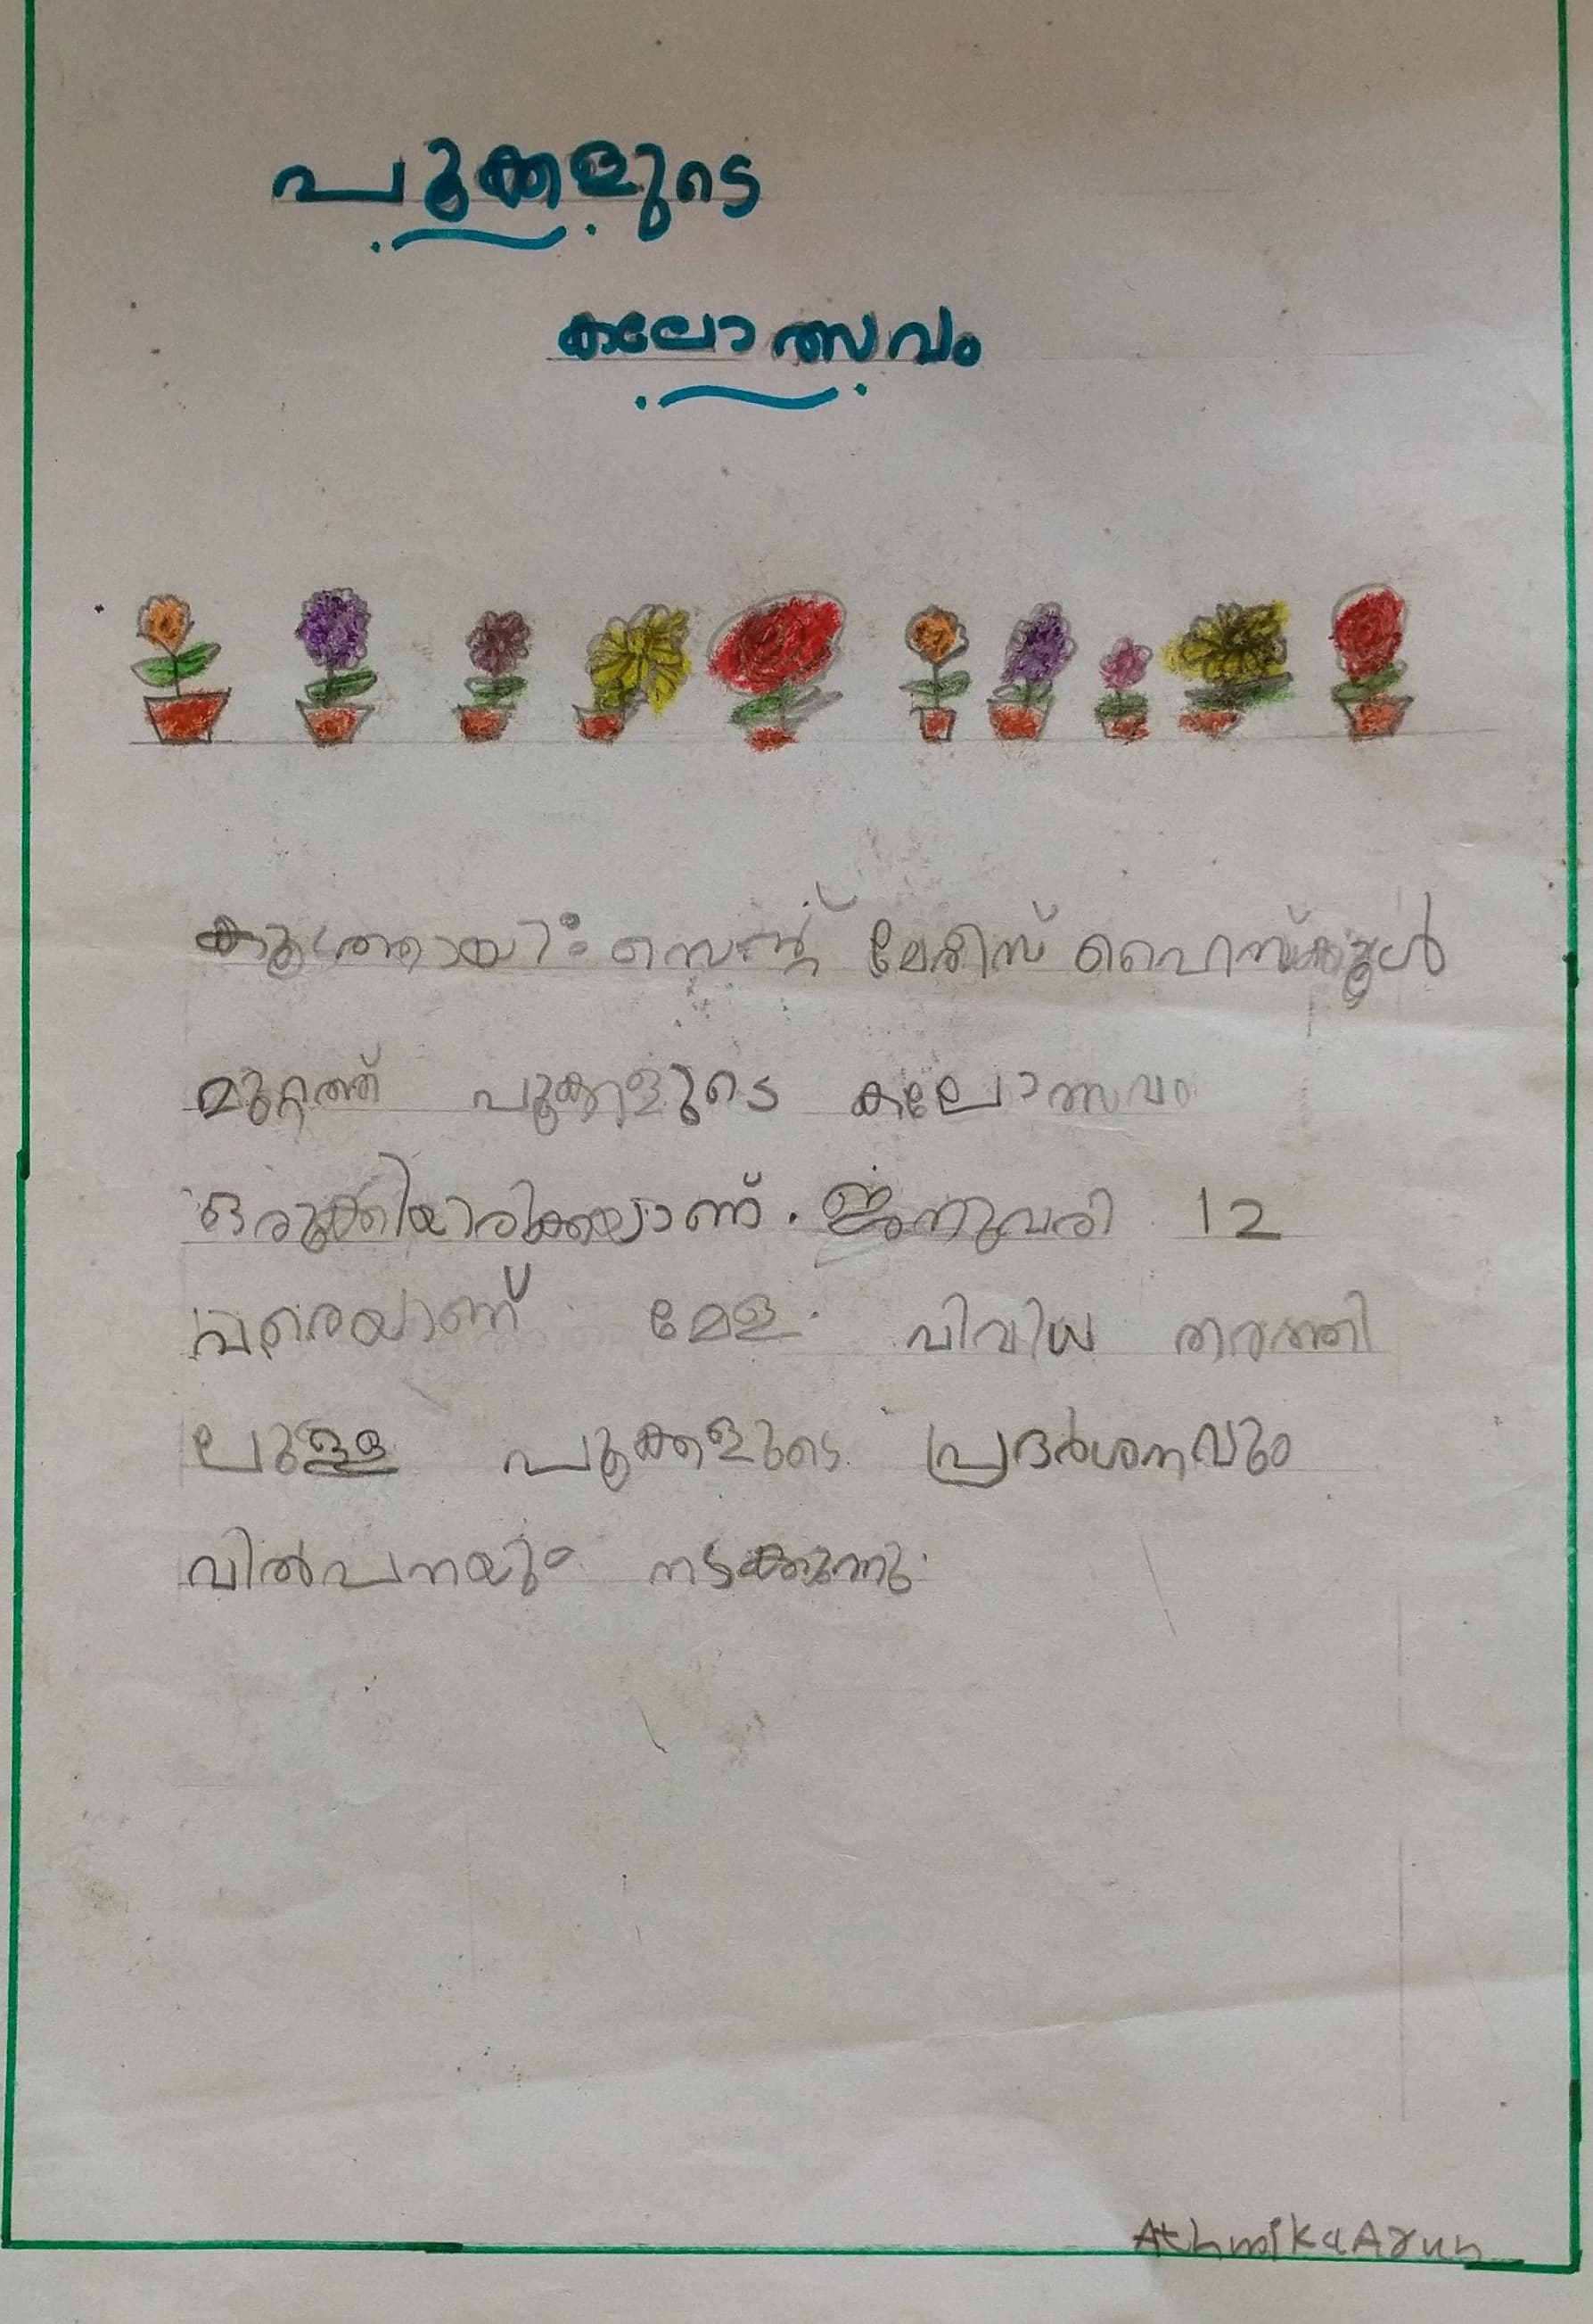 പൂക്കളുടെ
കലോത്സവം
കൂടത്തായി: സെന്റ് മേരീസ് ഹൈസ്കൂൾ
മുറ്റത്ത് പൂക്കളുടെ കലോത്സവം
ഒരുക്കിയിരിക്കയാണ്. ജനുവരി 12
വരെയാണ് മേള. വിവിധ തരത്തി
ലുള്ള പൂക്കളുടെ പ്രദർശനവും
വിൽപനയും നടക്കുന്നു.
Athmika Arun